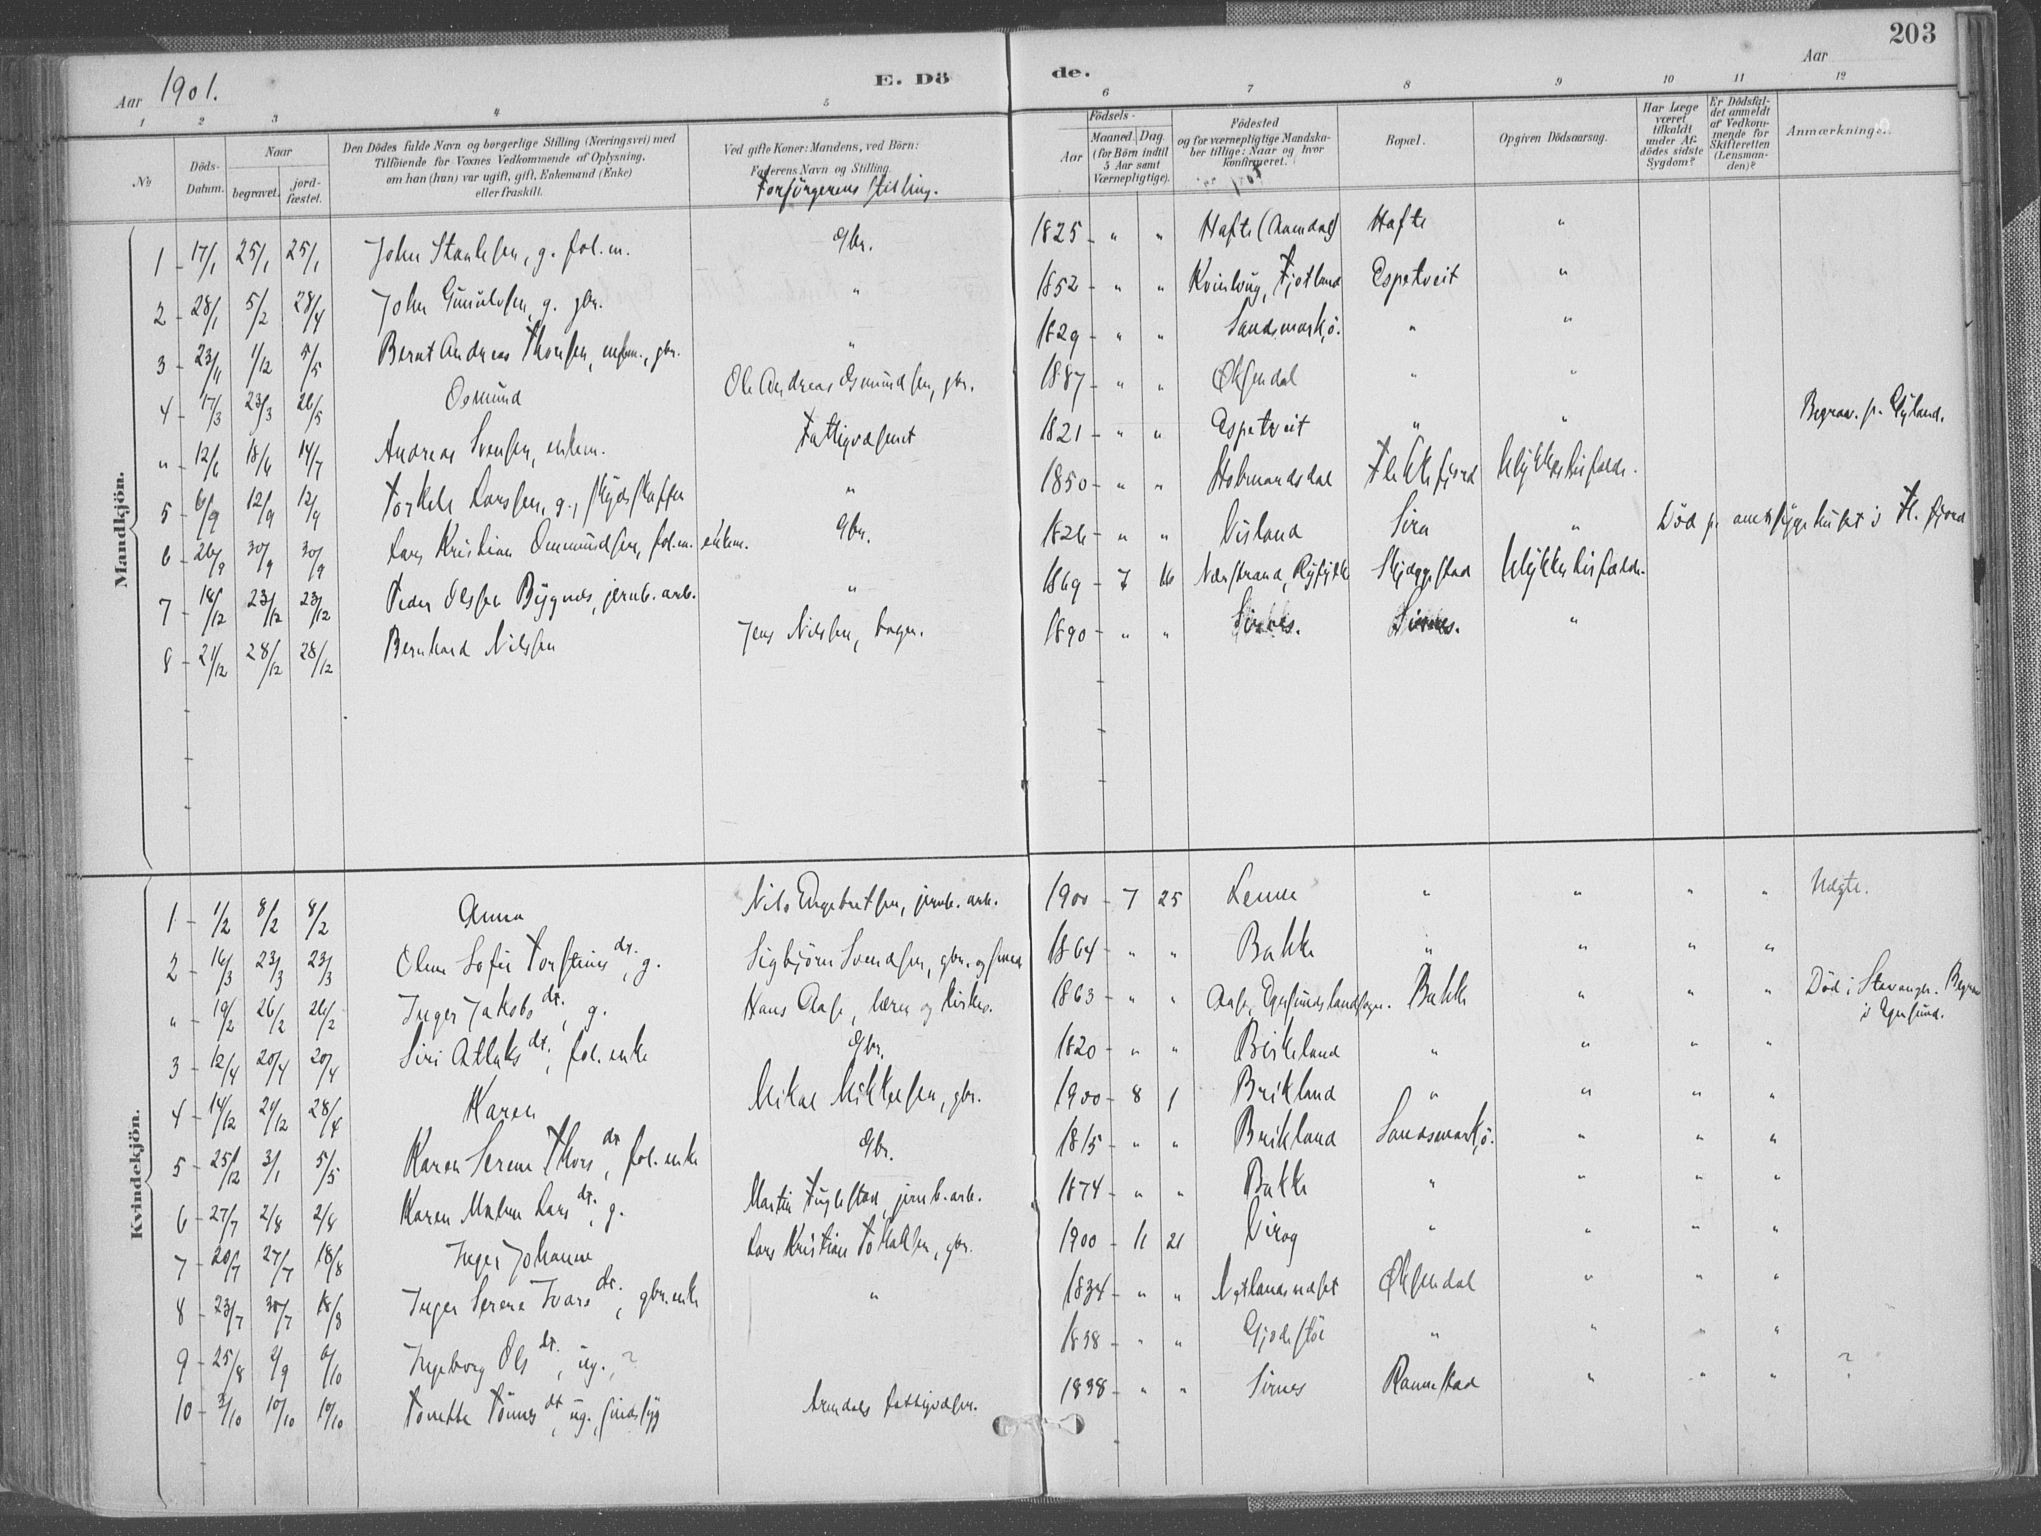 203
Aar 1901.
E. Dö
de.
Aar
1 2 3 4 5 6 7 8 9 10 11 12
No
Döds-Datum.
Naar
begravet.
jord-fæstet.
Den Dödes fulde Navn og borgerlige Stilling (Næringsvei) med
Tilföiende for Voxnes Vedkommende af Oplysning,
om han (hun) var ugift, gift, Enkemand (Enke)
eller fraskilt.
Ved gifte Koner: Mandens, ved Börn:
Faderens Navn og Stilling.
Forsörgerens Stilling.
Födsels-
Aar
Maaned. Dag.
(for Börn indtil
5 Aar samt
Værnepligtige).
Födested
og for værnepligtige Mandska-
ber tillige: Naar og hvor
konfirmeret.
Bopæl.
Opgiven Dödsaarsag.
Har Læge
været
tilkaldt
under Af-
dödes sidste
Sygdom?
Er Dödsfal-
det anmeldt
af Vedkom-
mende for
Skifteretten
(Lensman-
den)?
Anmærkninger.
Mandkjön.
1 17/1 25/1 25/1 John g. fol.m. Gbr. 1825 " " Hafte Hafte "
2 28/1 5/2 28/4 John g. gbr. " 1852 " " Fjotland Espetveit "
3 23/11 1/12 5/5 Bernt Andreas gbr. " 1829 " " Sandsmark, ö. " "
4 17/3 23/3 26/5 Osmund Ole Andreas Osmundsen, gbr. 1887 " " Öksendal " "
" 12/6 18/6 14/7 Andreas Svensen, enkem. Fattigvæsenet 1821 " " Espetveit " " Begrav. p. Gyland.
5 6/9 12/9 12/9 Torkel Larssen, g., skydsskaffer " 1850 " " Flekkefjord Ulykkestilfælde.
6 26/9 30/9 30/9 Lars Kristian Ommundsen, fol.m. enkem. Gbr. 1826 " " Sira " Död p. amtssygehuset i Fl. fjord
7 18/12 23/12 23/12 Peder Olsen Bygnes, jernb. arb. " 1869 7 16 Nærstrand, Ryfylke Skjeggestad Ulykkestilfælde.
8 21/12 28/12 28/12 Bernhard Nilssen Jens Nilssen, bager. 1890 " " Sirnes. Sirnes. "
Kvindekjön.
1 1/2 8/2 8/2 Anna Nils Engebretsen, jernb. arb. 1900 7 25 " " " " Uægte.
2 16/3 23/3 23/3 Oline Sofie dt., g. Sigbjörn Svendsen, gbr. og smed 1864 " " Bakke " " " "
" 19/2 26/2 26/2 Inger Jakobs dt., g. Hans Aase, lærer og kirkes. 1863 " " Aase, Egersunds landsogn. Bakke " " " Död i Stavanger. Begrav
i Egersund.
3 12/4 20/4 20/4 Siri Atlaks dt., fol. enke Gbr. 1820 " " Birkeland " " " "
4 14/12 21/12 28/4 Karen Mikal Mikkelsen, gbr. 1900 8 1 Birkland " " " "
5 25/12 3/1 5/5 Karen Serine Thors dt., fol. enke Gbr. 1815 " " Birkland Sandsmark, ö. " " "
6 27/7 2/8 2/8 Karen Malene Lars dt., g. Martin Fuglestad, jernb. arb. 1874 " " Bakke " " " "
7 20/7 27/7 18/8 Inger Johanne Lars Kristian gbr. 1900 11 21 Virog " " " "
8 23/7 30/7 18/8 Inger Serine Ivars dt., gbr. enke " 1834 " " Netlandsnæset Öksendal " " "
9 25/8 2/9 6/10 Ingeborg Ols dt., ug. ? 1838 " " " " "
10 3/10 10/10 10/10 Tonette Tönnes dt., ug., sindssyg Fattigvæsen. 1838 " " Sirnes Rannestad " " " ?